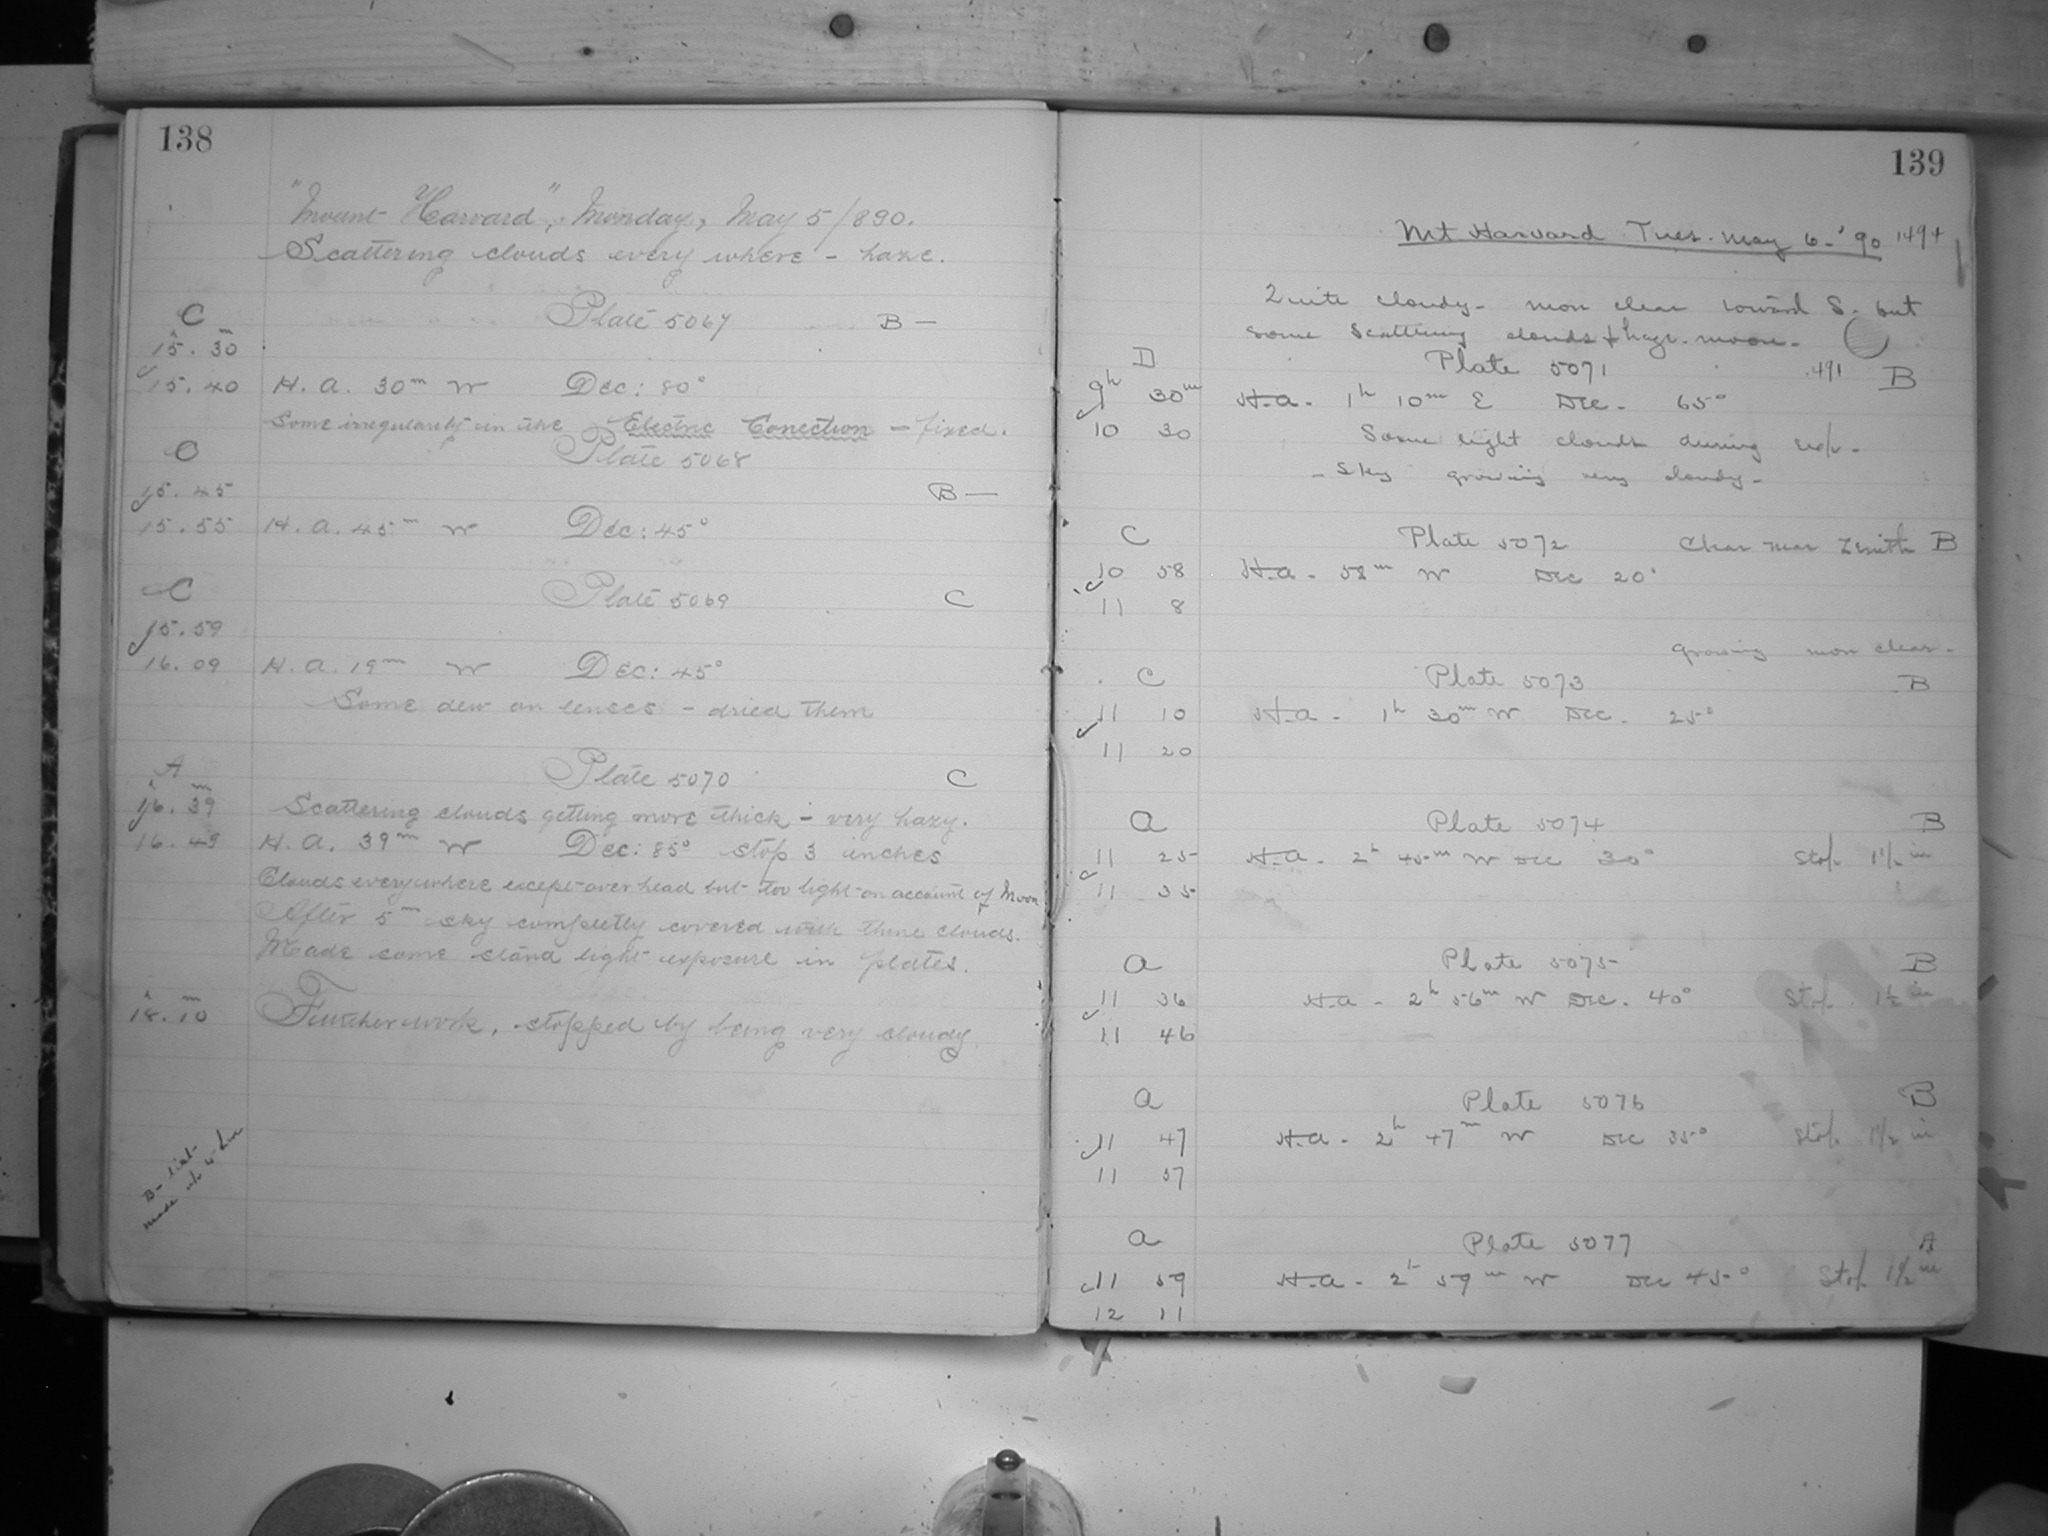 138
"Mount Harvard", Monday, May 5/890.
Scattering clouds every where - haze.
C Plate 5067 B —
h m
15. 30
15. 40 H. A. 30m W Dec: 80°
Some irregularity in the Electric Conection - fixed.
C Plate 5068
15. 45 B —
15. 55 H. A. 45m W Dec: 45°
C Plate 5069 C
15. 59
16. 09 H. A. 19m W Dec: 45°
Some dew on lenses - dried them
A Plate 5070 C
h m
16. 39 Scattering clouds getting more thick - very hazy.
16. 49 H. A. 39m W Dec: 85° stop 3 inches
Clouds everywhere except over head but too light on account of Moon
After 5m sky completly covered with thine clouds.
Made some stand light exposure in plates.
h m
18. 10 Further work, stopped by being very cloudy.
B- list
made
139
Mt Harvard Tues. May 6 - '90 1494
Quite cloudy - mor clear toward S. but
some scattering clouds & haze. moon -
D Plate 5071 .491 B
9h 30m H.a. 1h 10m E Dec. 65°
10 30 Some light clouds during exp. -
- sky growing very cloudy -
C Plate 5072 Clear near Zenith B
10 58 H.a. 58m W Dec 20°
11 8
growing mor clear -
C Plate 5073 B
11 10 H.a. 1h 30m W Dec. 25°
11 20
a Plate 5074 B
11 25 H.a. 2h 45m W Dec 30° Stop 1 1/2 in
11 35
a Plate 5075 B
11 36 H.a. 2h 56m W Dec. 40° Stop 1 1/2 in
11 46
a Plate 5076 B
11 47 H.a. 2h 47m W Dec 35° Stop 1 1/2 in
11 57
a Plate 5077 A
11 59 H.a. 2h 59m W Dec 45° Stop 1 1/2 in
12 11